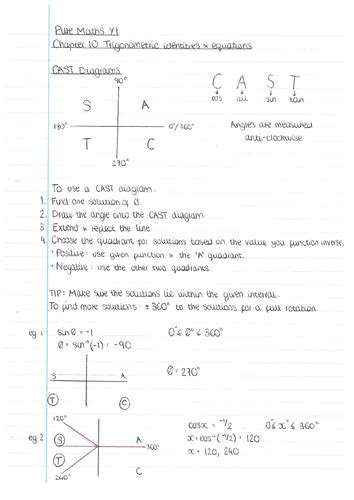 Pure Maths Y1
Chapter 10 Trigonometric identities & equations
CAST Diagrams
90°
C A S T
cos all sin tan
S A
180° 0°/360°
T C
270°
Angles are measured
anti-clockwise.
To use a CAST diagram:
1. Find one solution of θ.
2. Draw the angle onto the CAST diagram.
3. Extend & reflect the line
4. Choose the quadrant for solutions based on the value you function inverse.
• Positive: use given function & the 'A' quadrant.
• Negative: use the other two quadrants.
TIP: Make sure the solutions lie within the given interval.
To find more solutions: ± 360° to the solutions for a full rotation.
eg 1 sinθ = -1 0° ≤ θ° ≤ 360°
θ = sin⁻¹(-1) = -90
S A
θ = 270°
T C
120°
eg 2 S A 360°
T C
240°
cosx = -1/2 0 ≤ x° ≤ 360°
x = cos⁻¹(-1/2) = 120
x = 120, 240